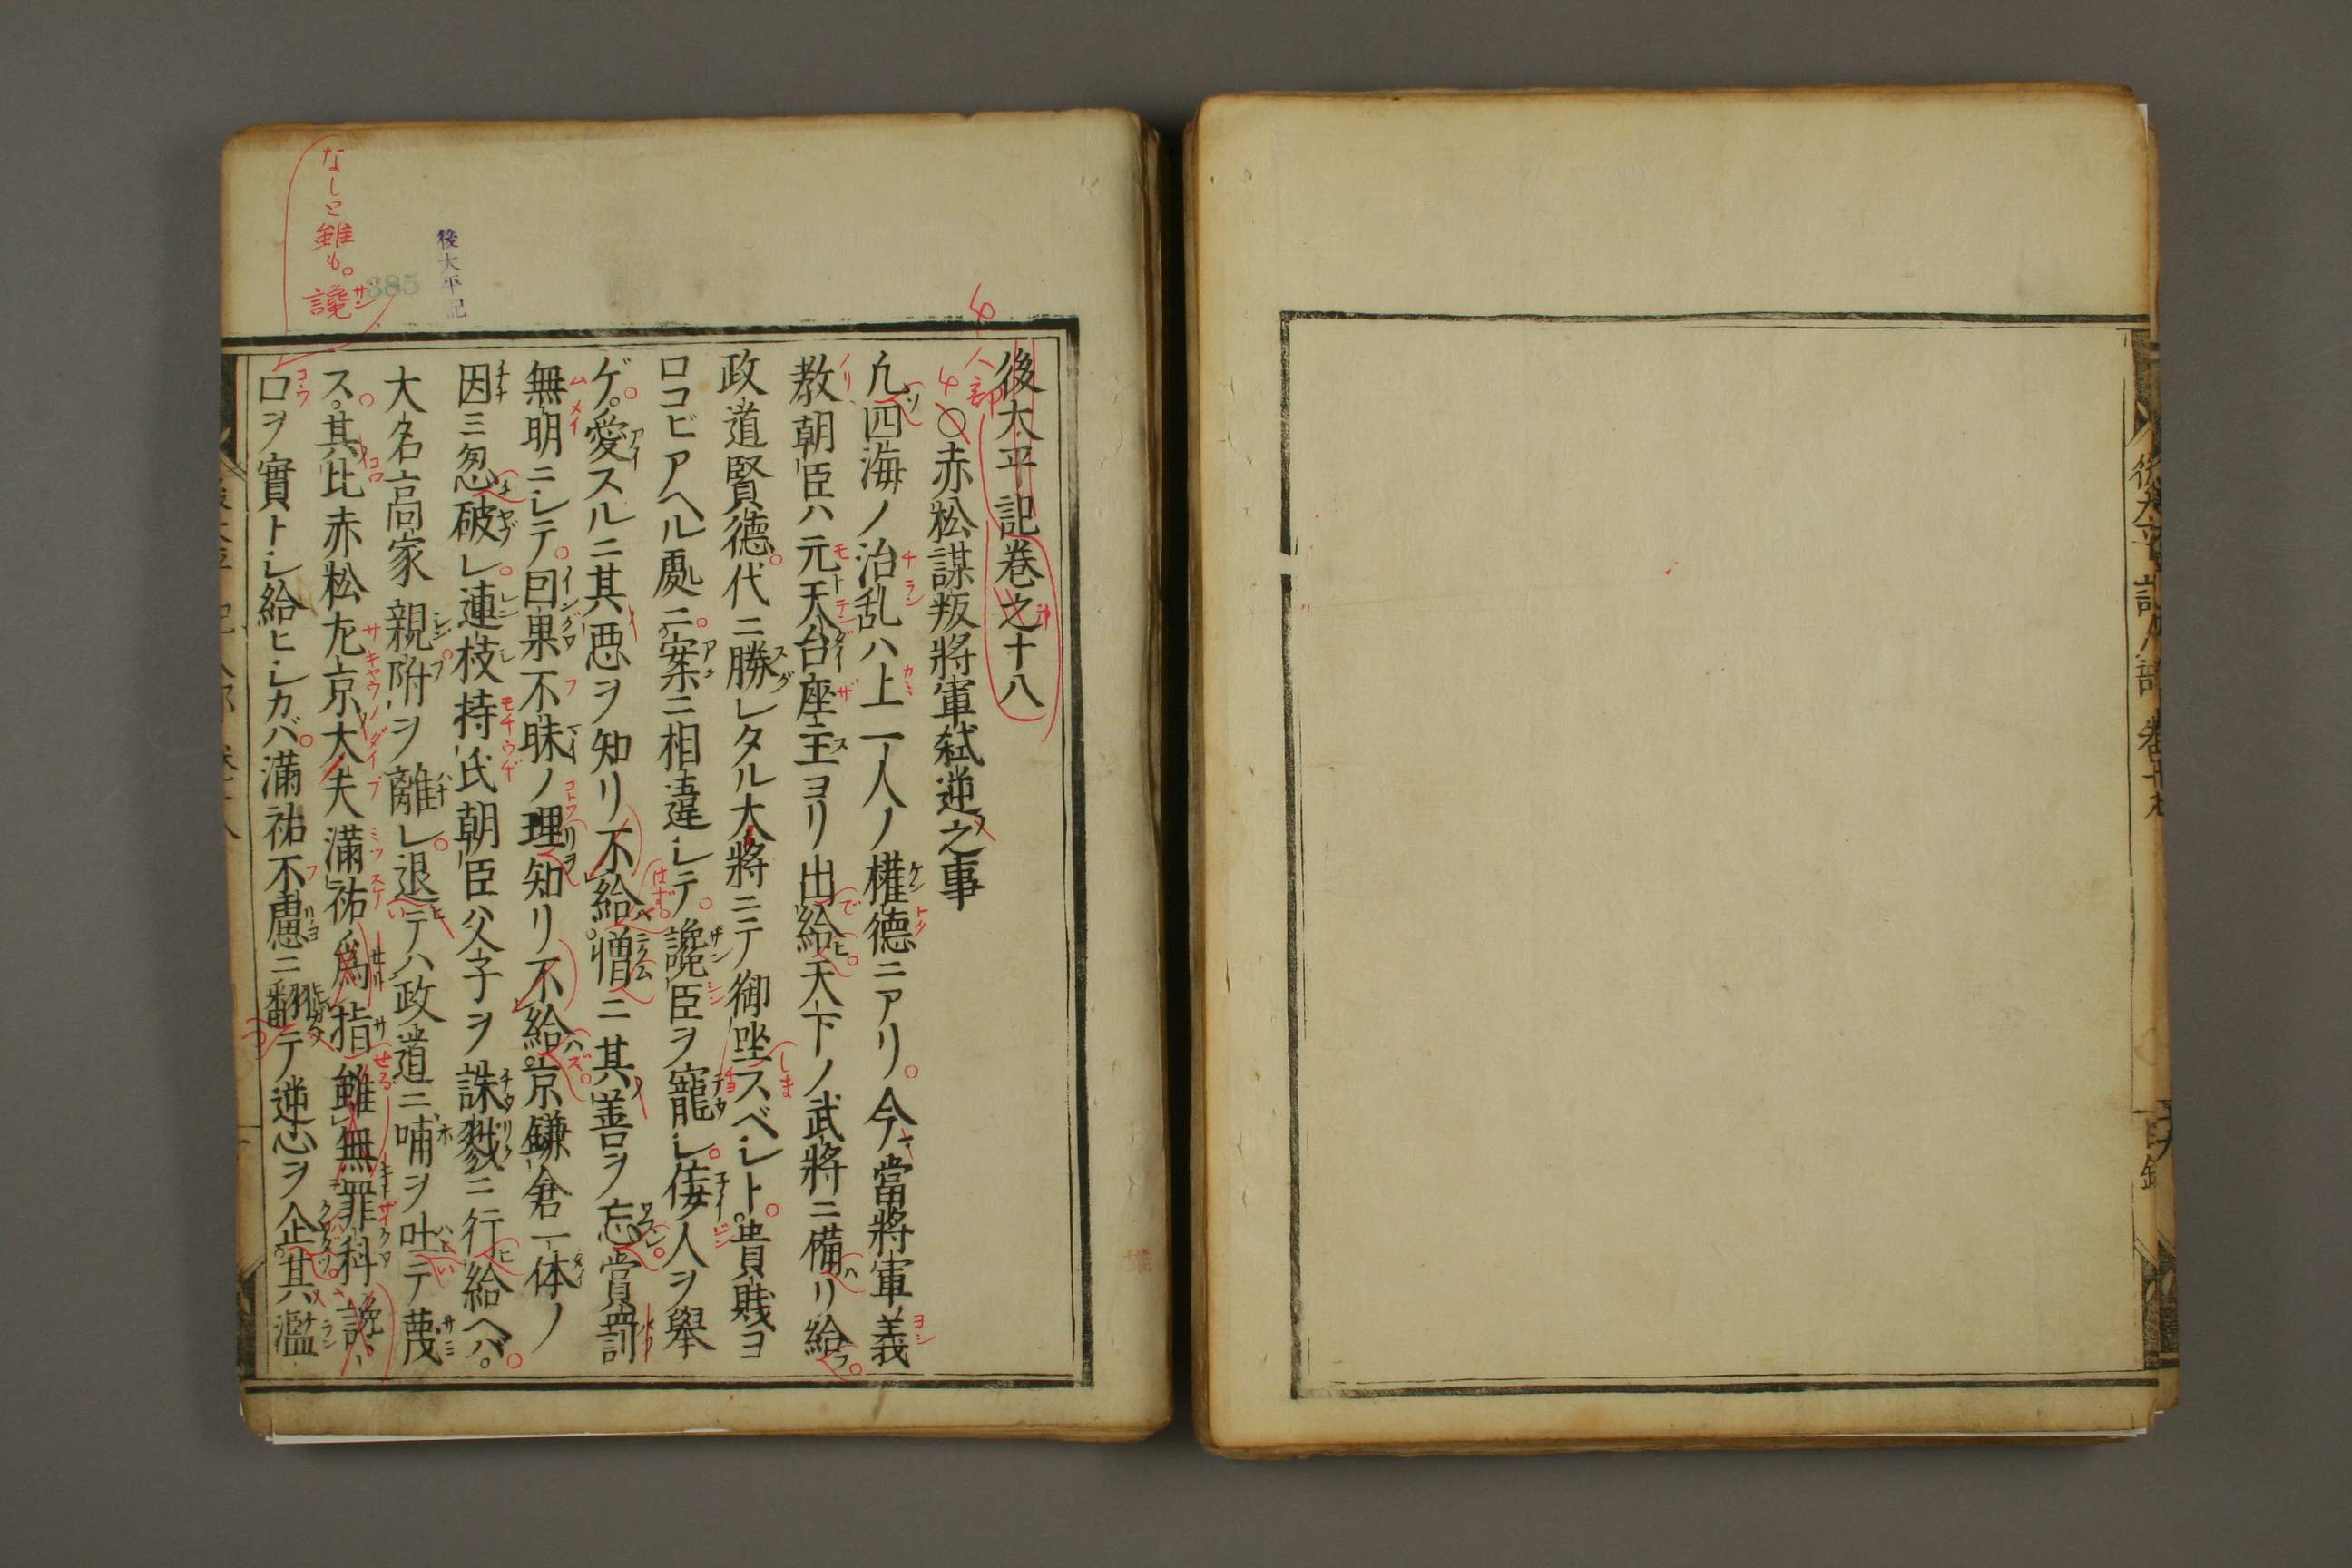 後太平記巻之十八
○赤松謀叛將軍弑逆之事
凡四海ノ治乱ハ上一人ノ權德ニアリ今當將軍義
教朝臣ハ元天台座主ヨリ出給ヒ天下ノ武將ニ備リ給フ
政道賢德代ニ勝レタル大將ニテ御坐スベシト貴賤ヨ
ロコビアヘル處ニ案ニ相違シテ讒臣ヲ寵シ侫人ヲ舉
ゲ愛スルニ其悪ヲ知リ不給憎ニ其善ヲ忘賞罰
無明ニシテ因果不昧ノ理知リ不給京鎌倉一体ノ
因ミ忽破レ連枝持氏朝臣父子ヲ誅戮ニ行給ヘバ
大名高家親附ヲ離レ退テハ政道ニ哺ヲ吐テ蔑
ス其比赤松左京大夫滿祐爲指雖無罪科讒
口ヲ實トシ給ヒシカバ滿祐不慮ニ翻テ逆心ヲ企其濫
なしと雖も。讒
後太平記
385